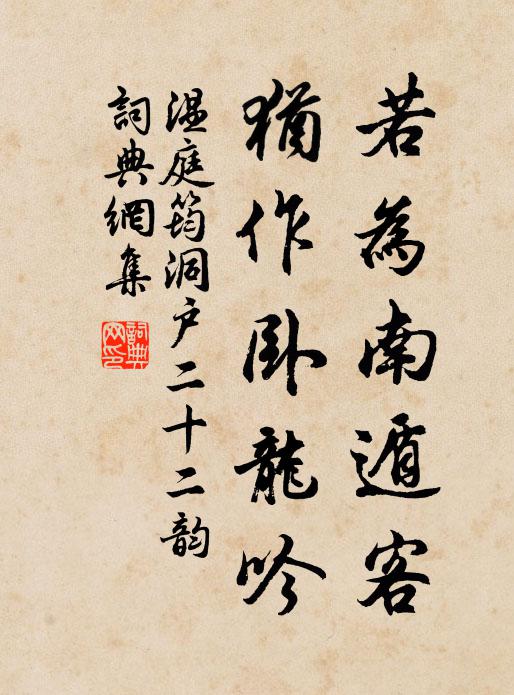 若為南遁客
猶作臥龍吟
温庭筠洞户二十二韵
詞典網集
詞典網印